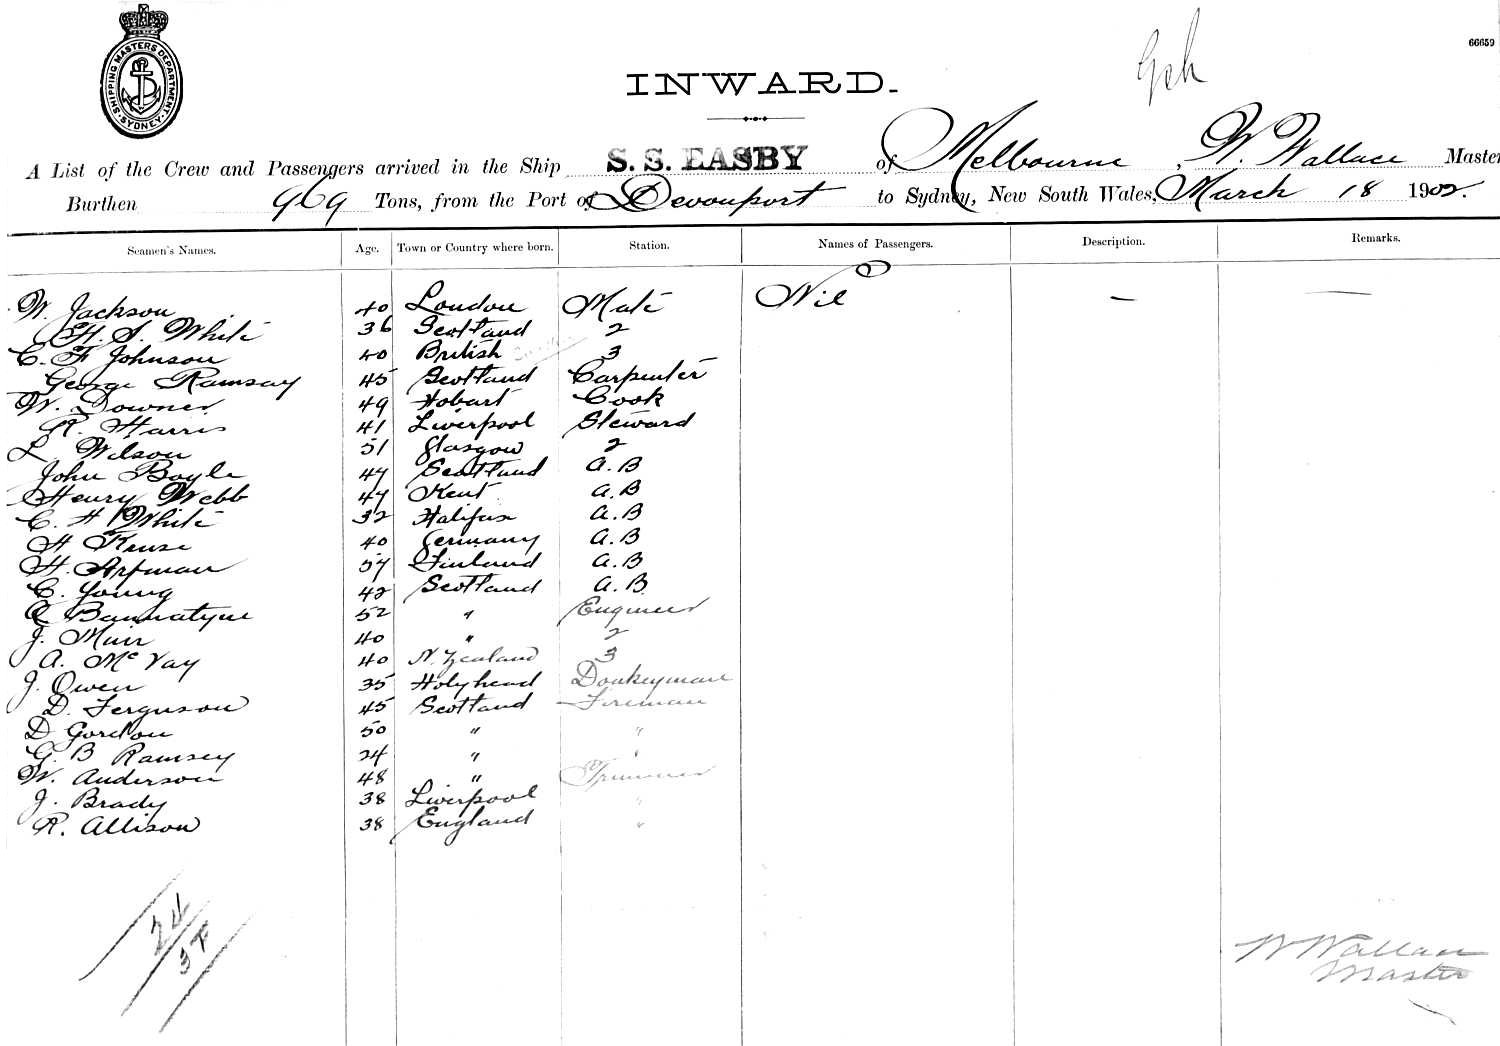 SHIPPING MASTERS DEPARTMENT
SYDNEY
66659
INWARD.
A List of the Crew and Passengers arrived in the Ship S. S. EASBY of Melbourne, W. Wallace Master
Burthen 969 Tons, from the Port of Devonport to Sydney, New South Wales, March 18 1902.
Seamen's Names. Age. Town or Country where born. Station. Names of Passengers. Description. Remarks.
W. Jackson 40 London Mate Nil — —
H. S. White 36 Scotland 2
C. F Johnson 40 British 3
George Ramsay 45 Scotland Carpenter
W. Downer 49 Hobart Cook
R. Harris 41 Liverpool Steward
L Wilson 51 Glasgow 2
John Boyle 47 Scotland A.B
Henry Webb 47 Kent A.B
C. H White 32 Halifax A.B
H Kruse 40 Germany A.B
H. 57 Finland A.B
C. Young 42 Scotland A.B.
Bannatyne 52 " Engineer
J. Muir 40 " 2
A. McVay 40 N. Zealand 3
J. Owen 35 Holyhead Donkeyman
D. Ferguson 45 Scotland Fireman
D Gordon 50 " "
G. B Ramsey 24 " "
W. Anderson 48 " Trimmer
J. Brady 38 Liverpool "
R. Allison 38 England "
24
W Wallace
Master